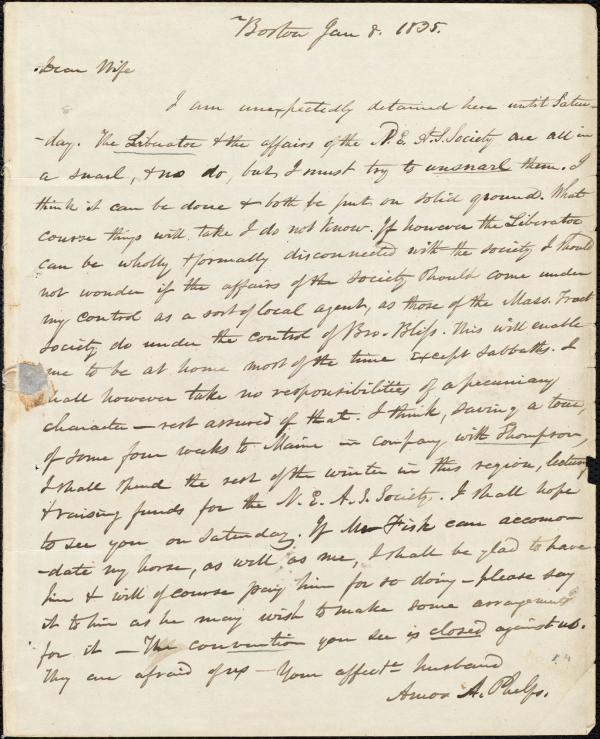 Boston Jan 8. 1835.
Dear Wife
I am unexpectedly detained here until Satur-
-day. The Liberator & the affairs of the N. E. A. S. Society are all in
a snarl, & no do, but I must try to unsnarl them. I
think it can be done & both be put on solid ground. What
course things will take I do not know. If however the Liberator
can be wholly & formally disconnected with the society I should
not wonder if the affairs of the Society should come under
my control as a sort of local agent, as those of the Mass. Tract
Society do under the control of Bro. Bliss. This will enable
me to be at home most of the time except Sabbaths. I
shall however take no responsibilities of a pecuniary
character — rest assured of that. I think, saving a tour,
of some four weeks to Maine in company with Thompson,
I shall spend the rest of the winter in this region, lecturing
& raising funds for the N. E. A. S. Society. I shall hope
to see you on Saturday. If Mr Fisk can accomo-
-date my horse, as well as me, I shall be glad to have
him & will of course pay him for so doing — please say
it to him as he may wish to make some arrangement
for it — The convention you see is closed against us.
They are afraid of us — Your affecte husband
Amos A. Phelps.